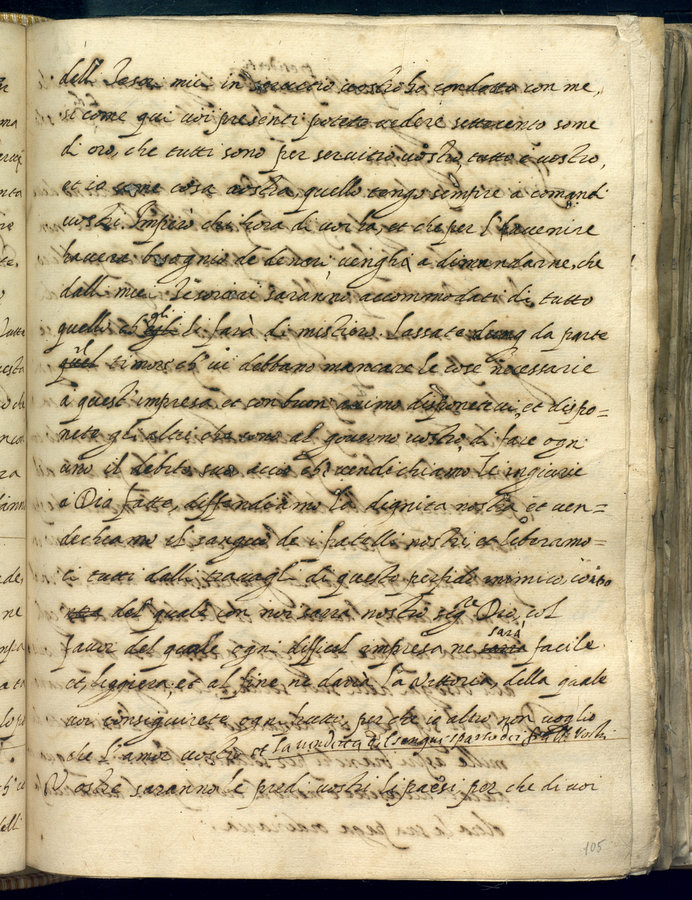 delli Tesori miei in servitio vostro ho condotto con me,
si come qui voi presenti potete vedere settecento some
di oro, che tutti sono per servitio vostro, tutto è vostro,
et io come cosa vostra quello tengo sempre à comandi
vostri. Imperò che hora di voi la, et che per l'avenire
haverà bisognio de denari, venghi à dimandarne, che
dalli miei Tesorieri saranno accommodati di tutto
quello ch'gli li farà di mistiero. Lassate da parte
il timore ch'vi debbano mancare le cose necessarie
à quest'impresa, et con buon animo disponetevi, et dispo=
nete gli altri che sono al governo vostro, di fare ogni
uno il debito suo acciò ch'vendichiamo le ingiurie
à Dio fatte, diffendiamo la dignità nostra et ven=
dichiamo il sangue de i fratelli nostri, et liberiamo=
ci tutti dalli travagli di questo perfido inimico,
del quale con noi sarrà nostro sigre Dio, col
favor del quale ogni difficil impresa ne sarà facile
et leggiera, et al fine ne darrà la Vittoria, della quale
voi conseguirete ogni frutto, perche io altro non voglio
che l'amor vostro et la vendetta del sangue sparso dei fratelli vostri
Vostre saranno le prede vostri li paesi, per che di voi
105